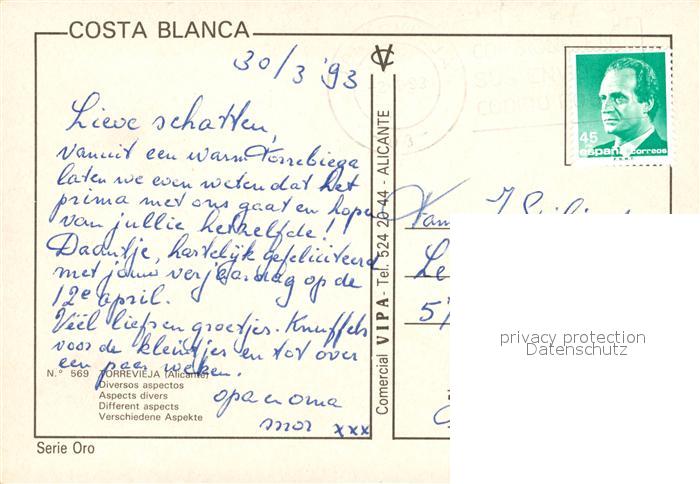 COSTA BLANCA
30/3 '93
Lieve schatten,
vanuit een warm Torrebiega
laten we even weten dat het
prima met ons gaat en hopen
van jullie hetzelfde!!
Daantje, hartelijk gefeliciteerd
met jouw verjaardag op de
12e april.
Véél liefs en groetjes. Knuffels
voor de kleintjes en tot over
een paar weken.
opa en oma
xxx
N.° 569 TORREVIEJA (Alicante)
Diversos aspectos
Aspects divers
Different aspects
Verschiedene Aspekte
Serie Oro
Comercial VIPA - Tel. 524 20 44 - ALICANTE
45
españa correos
Fam.
Le
51
privacy protection
Datenschutz